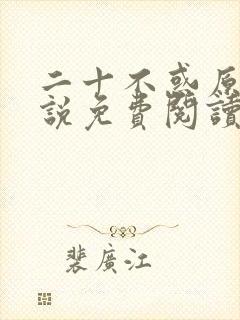 二十不或原
說免費閱讀
裴廣江